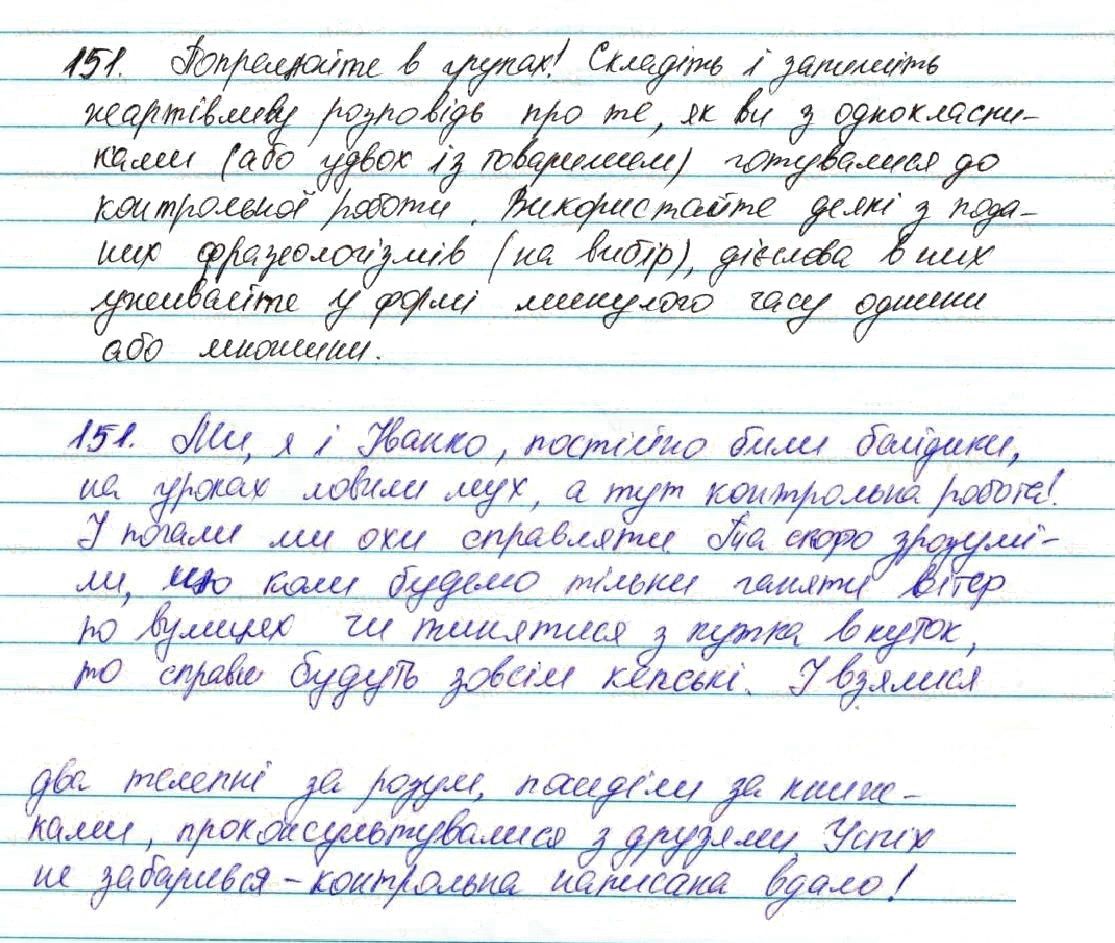 151. Попрацюйте в групах! Складіть і запишіть
жартівливу розповідь про те, як ви з однокласни-
ками (або удвох із товаришем) готувалися до
контрольної роботи. Використайте деякі з пода-
них фразеологізмів (на вибір), дієслова в них
уживайте у формі минулого часу однини
або множини.
151. Ми, я і Іванко, постійно били байдики,
на уроках ловили мух, а тут контрольна робота!
І почали ми охи справляти. Та скоро зрозумі-
ли, що коли будемо тільки ганяти вітер
по вулицях чи тинятися з кутка в куток,
то справи будуть зовсім кепські. І взялися
два телепні за розум, посиділи за книж-
ками, проконсультувалися з друзями. Успіх
не забарився - контрольна написана вдало!